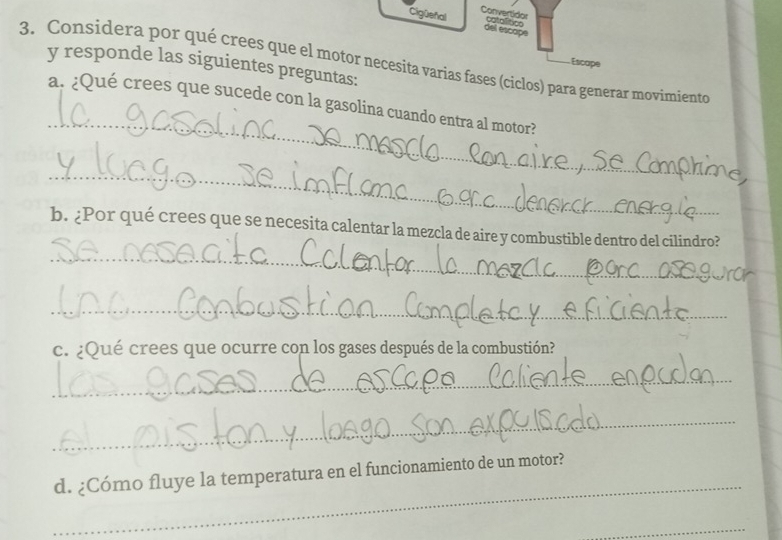 Cigüeñal
Convertidor
catalítico
del escape
Escape
3. Considera por qué crees que el motor necesita varias fases (ciclos) para generar movimiento
y responde las siguientes preguntas:
a. ¿Qué crees que sucede con la gasolina cuando entra al motor?
la gasolina se mescla con aire, se comprime,
y luego se inflama para denerar energia
b. ¿Por qué crees que se necesita calentar la mezcla de aire y combustible dentro del cilindro?
se nesecita Calentar la mezcla para asegurar
una Conbustion Completa y eficiente
c. ¿Qué crees que ocurre con los gases después de la combustión?
los gases de escape caliente enpudan
el piston y luego son expulsado
d. ¿Cómo fluye la temperatura en el funcionamiento de un motor?